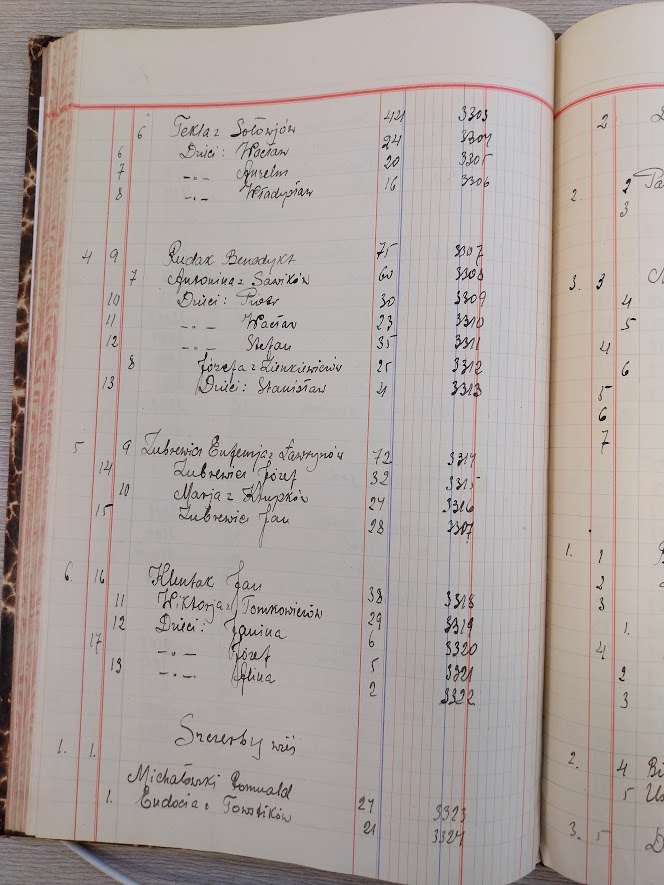 6 Tekla z Sołowjów 44 3303
6 Dzieci: Wacław 24 3304
7 -"- Anzelm 20 3305
8 -"- Władysław 16 3306
4 9 Rudak Benedykt 75 3307
7 Antonina z Sawików 60 3308
10 Dzieci: Piotr 30 3309
11 -"- Wacław 23 3310
12 -"- Stefan 35 3311
8 Józefa z Zienkiewiczów 25 3312
13 Dzieci: Stanisław 4 3313
5 9 Zubrewicz Eufemja z Ławrynów 72 3314
14 Zubrewicz Józef 32 3315
10 Marja z Krupków 24 3316
15 Zubrewicz Jan 28 3307
6. 16 Jan 38 3318
11 Wiktorja z Tomkowiczów 29 3319
12 Dzieci: Janina 6 3320
17 -"- Józef 5 3321
13 -"- Alina 2 3322
Szczerby wieś
1. 1. Michałowski Romuald 27 3323
1. Eudocia z Towstików 21 3324
2
2. 2 Pa
3
3. 3
4
5
4
6
5
6
7
1. 1
2
3
1.
4
2
3
2. 4
5
3. 5